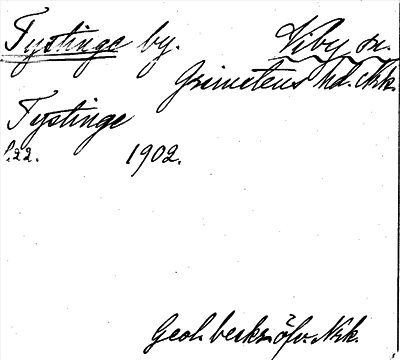 Tystinge by. Viby sn.
Grimstens hd. Nrk.
Tystinge
s.22. 1902.
Geol. beskr. öfv. Nrk.